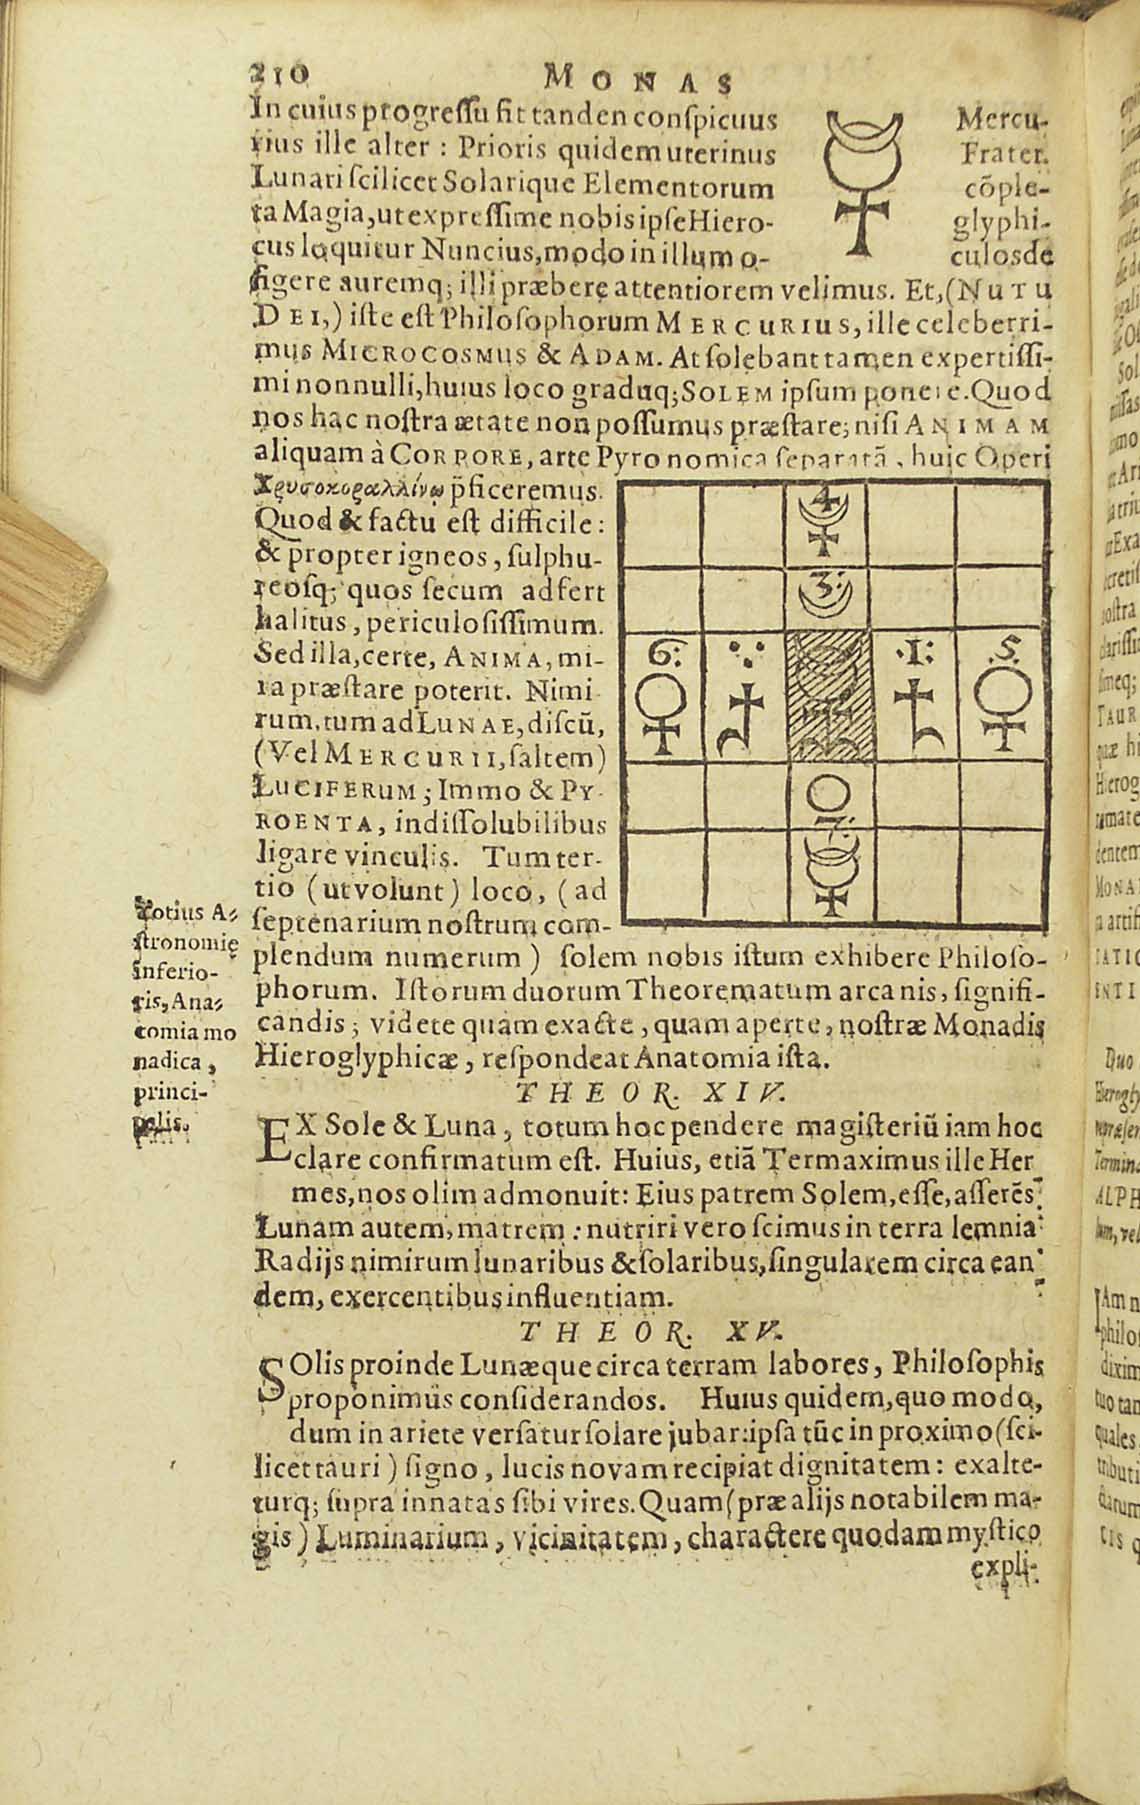 210 MONAS
In cuius progressu fit tanden conspicuus Mercu-
rius ille alter : Prioris quidem uterinus Frater.
Lunari scilicet Solarique Elementorum cõple-
ta Magia, ut expressime nobis ipse Hiero- glyphi-
cus loquitur Nuncius, modo in illum o- culos de
figere auremq; illi præbere attentiorem velimus. Et, (NUTU
DEI,) iste est Philosophorum MERCURIUS, ille celeberri-
mus MICROCOSMUS & ADAM. At solebant tamen expertissi-
mi nonnulli, huius loco graduq; SOLEM ipsum ponere. Quod
nos hac nostra ætate non possumus præstare; nisi ANIMAM
aliquam à CORPORE, arte Pyronomica separatã, huic Operi
Χρυσοκοραλλίνῳ p̃ficeremus.
Quod & factu est difficile:
& propter igneos, sulphu-
reosq; quos secum adfert
halitus, periculosissimum.
Sed illa, certe, ANIMA, mi-
ra præstare poterit. Nimi
rum, tum ad LUNAE, discũ,
(Vel MERCURII, saltem)
LUCIFERUM; Immo & PY-
ROENTA, indissolubilibus
ligare vinculis. Tum ter-
tio (ut volunt) loco, (ad
septenarium nostrum com-
plendum numerum) solem nobis istum exhibere Philoso-
phorum. Istorum duorum Theorematum arcanis, signifi-
candis; videte quam exacte, quam aperte, nostræ Monadis
Hieroglyphicæ, respondeat Anatomia ista.
4
3:
6: .1: .5.
7:
Totius A-
stronomię
inferio-
ris, Ana-
tomia mo
nadica,
princi-
palis.
THEOR. XIV.
EX Sole & Luna, totum hoc pendere magisteriũ iam hoc
clare confirmatum est. Huius, etiã Termaximus ille Her
mes, nos olim admonuit: Eius patrem Solem, esse, asserẽs:
Lunam autem, matrem : nutriri vero scimus in terra lemnia:
Radijs nimirum lunaribus & solaribus, singularem circa ean
dem, exercentibus influentiam.
THEOR. XV.
SOlis proinde Lunæque circa terram labores, Philosophis
proponimus considerandos. Huius quidem, quo modo,
dum in ariete versatur solare jubar: ipsa tũc in proximo (sci-
licet tauri) signo, lucis novam recipiat dignitatem: exalte-
turq; supra innatas sibi vires. Quam (præ alijs notabilem ma-
gis) Luminarium, vicinitatem, charactere quodam mystico
expli-